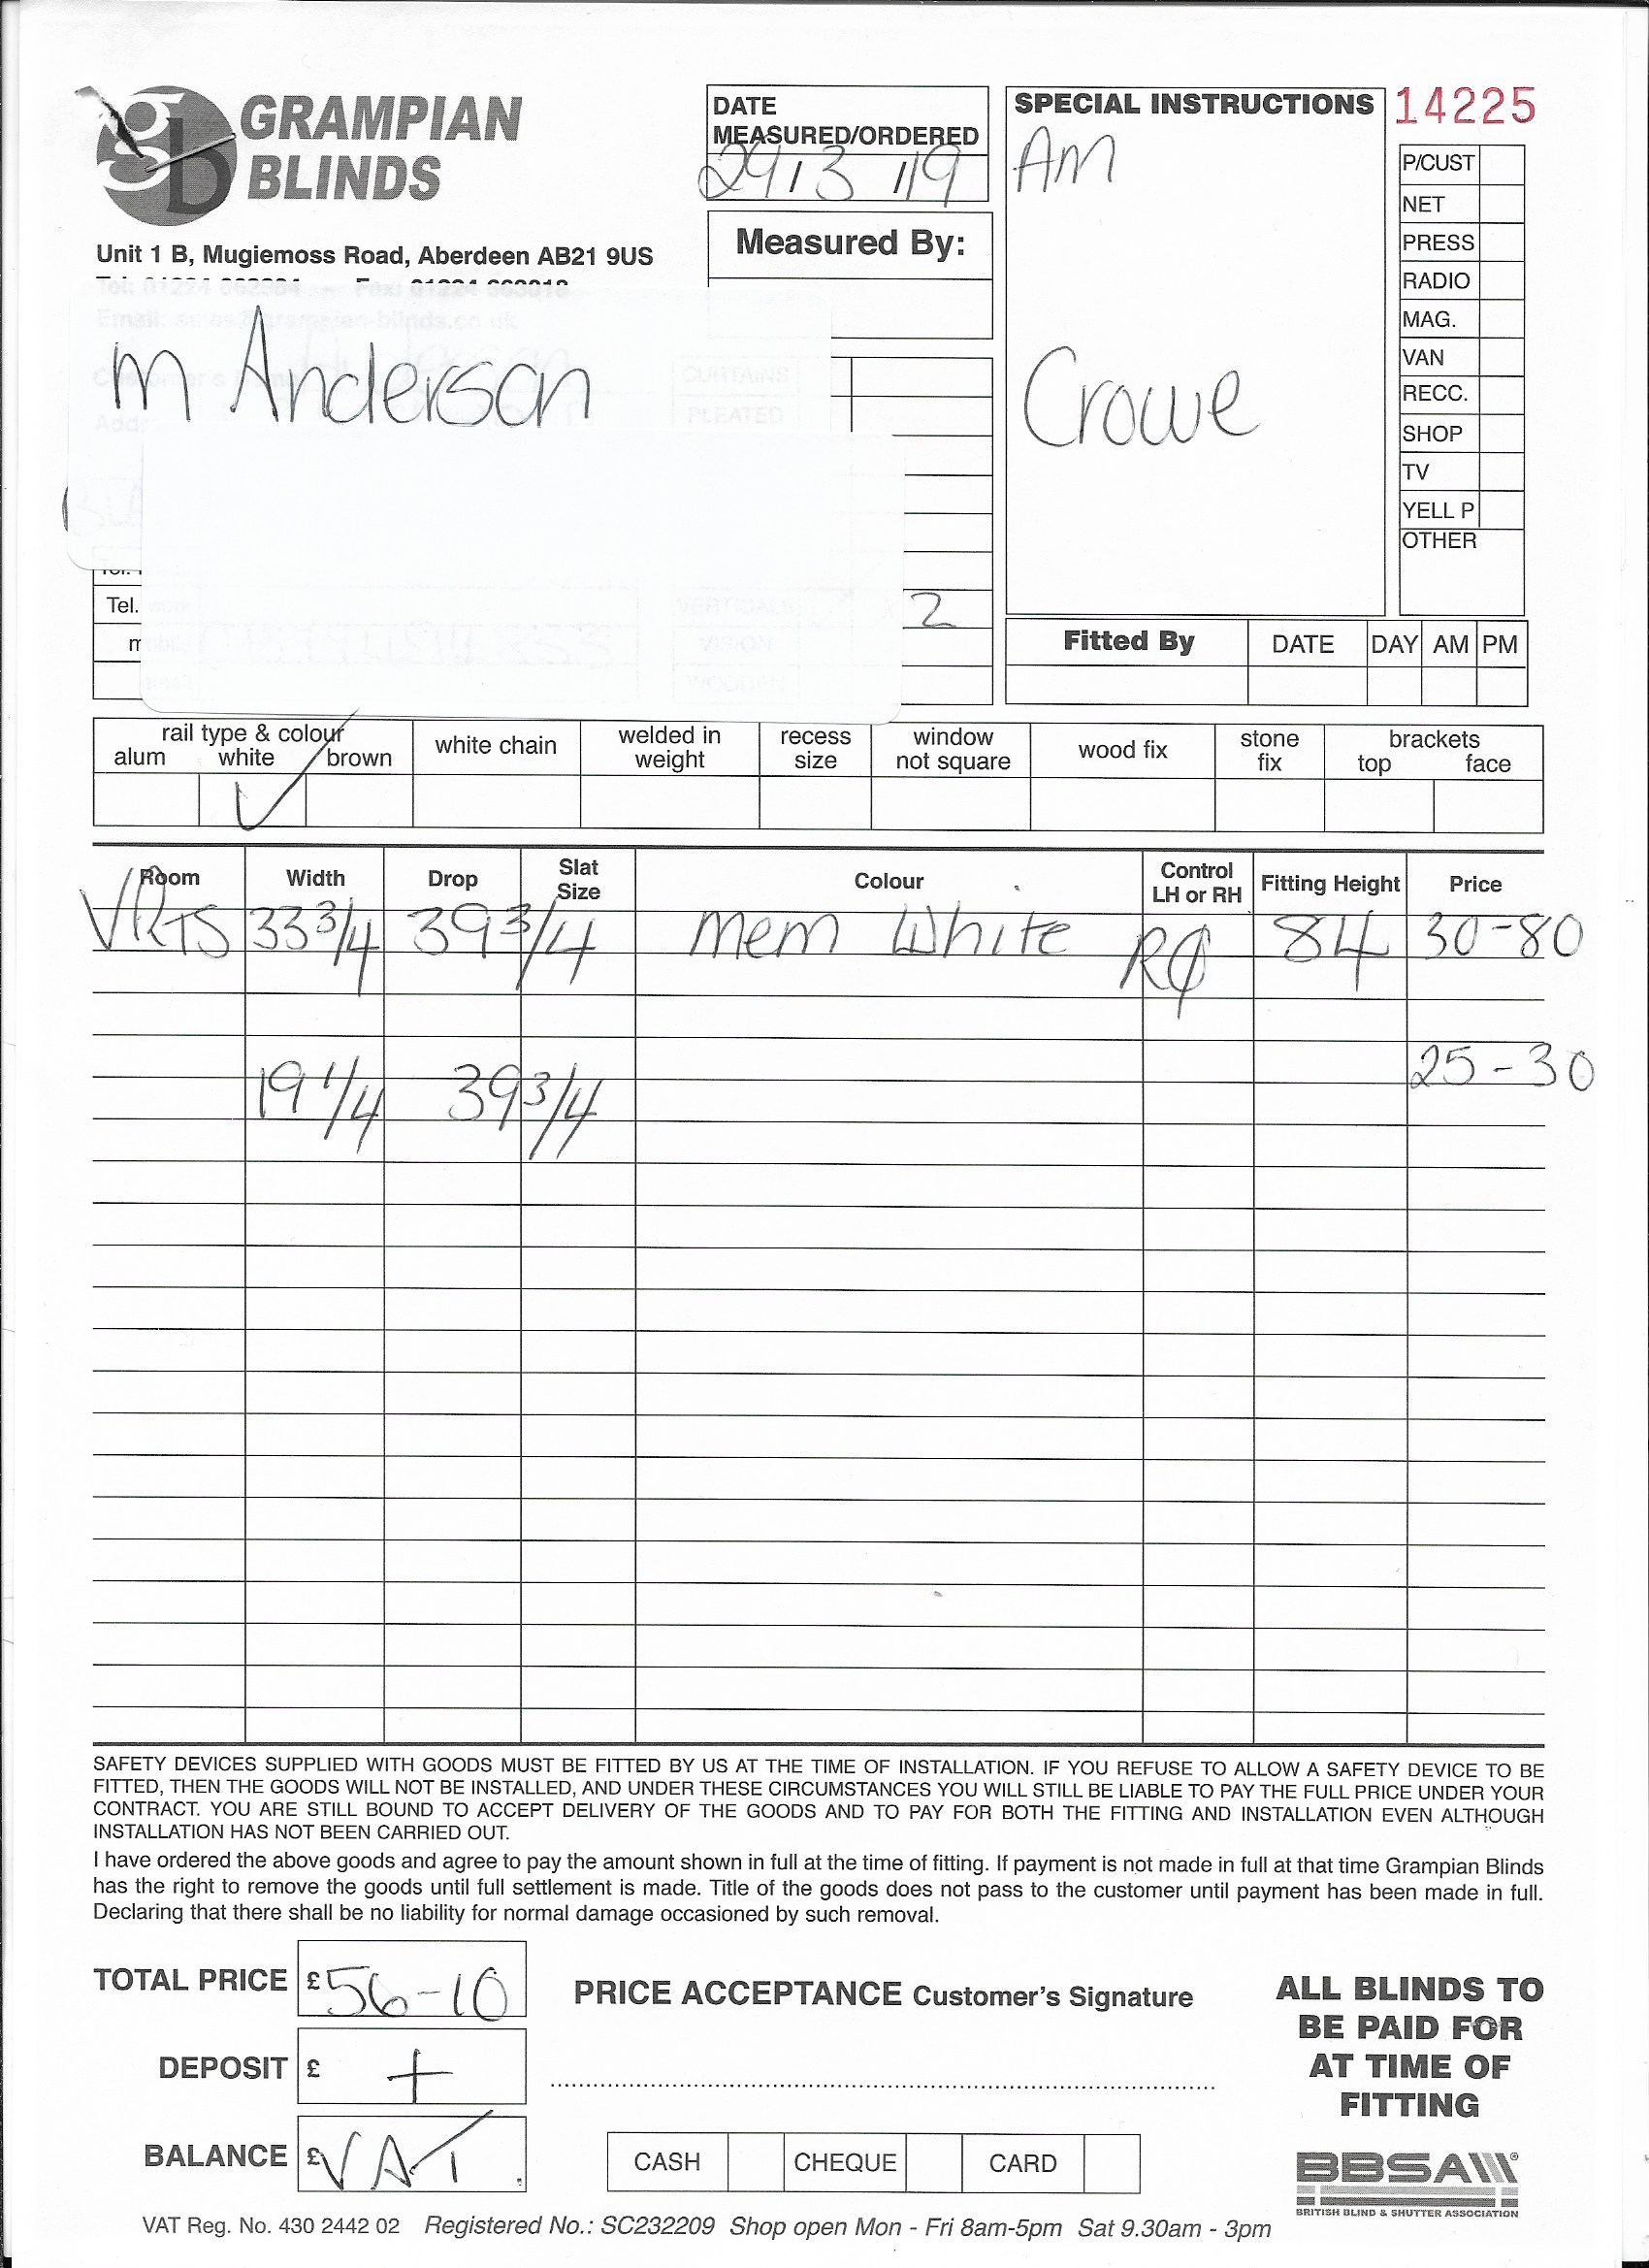 GRAMPIAN
BLINDS
Unit 1 B, Mugiemoss Road, Aberdeen AB21 9US
DATE
MEASURED/ORDERED
29/3/19
Measured By:
SPECIAL INSTRUCTIONS
AM
Crowe
14225
P/CUST
NET
PRESS
RADIO
MAG.
VAN
RECC.
SHOP
TV
YELL P
OTHER
M Anderson
CURTAINS
PLEATED
Tel.
VERTICALS 2
VISION
WOODEN
Fitted By DATE DAY AM PM
rail type & colour
alum white brown
white chain
welded in
weight
recess
size
window
not square
wood fix
stone
fix
brackets
top face
Room Width Drop Slat Size Colour Control LH or RH Fitting Height Price
VRTS 33 3/4 39 3/4 Mem White 84 30-80
19 1/4 39 3/4 25-30
SAFETY DEVICES SUPPLIED WITH GOODS MUST BE FITTED BY US AT THE TIME OF INSTALLATION. IF YOU REFUSE TO ALLOW A SAFETY DEVICE TO BE
FITTED, THEN THE GOODS WILL NOT BE INSTALLED, AND UNDER THESE CIRCUMSTANCES YOU WILL STILL BE LIABLE TO PAY THE FULL PRICE UNDER YOUR
CONTRACT. YOU ARE STILL BOUND TO ACCEPT DELIVERY OF THE GOODS AND TO PAY FOR BOTH THE FITTING AND INSTALLATION EVEN ALTHOUGH
INSTALLATION HAS NOT BEEN CARRIED OUT.
I have ordered the above goods and agree to pay the amount shown in full at the time of fitting. If payment is not made in full at that time Grampian Blinds
has the right to remove the goods until full settlement is made. Title of the goods does not pass to the customer until payment has been made in full.
Declaring that there shall be no liability for normal damage occasioned by such removal.
TOTAL PRICE £56-10
DEPOSIT £ +
BALANCE £ VAT
PRICE ACCEPTANCE Customer's Signature
CASH CHEQUE CARD
ALL BLINDS TO
BE PAID FOR
AT TIME OF
FITTING
BBSA
BRITISH BLIND & SHUTTER ASSOCIATION
VAT Reg. No. 430 2442 02 Registered No.: SC232209 Shop open Mon - Fri 8am-5pm Sat 9.30am - 3pm